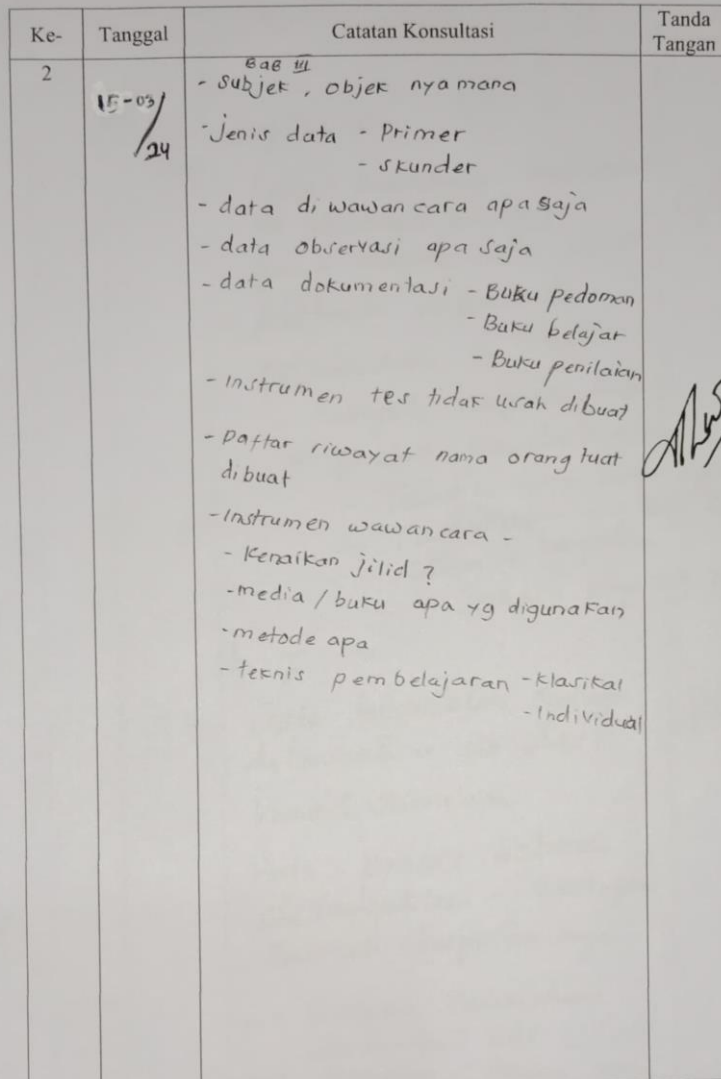 Ke- Tanggal Catatan Konsultasi Tanda Tangan
2 15-03/24 BAB III
- Subjek, objek nya mana
- Jenis data - Primer
- Skunder
- data di wawancara apa saja
- data observasi apa saja
- data dokumentasi - Buku pedoman
- Buku belajar
- Buku penilaian
- Instrumen tes tidak usah dibuat
- Daftar riwayat nama orang tuat
dibuat
- Instrumen wawancara -
- Kenaikan jilid ?
- media / buku apa yg digunakan
- metode apa
- teknis pembelajaran - Klasikal
- Individual